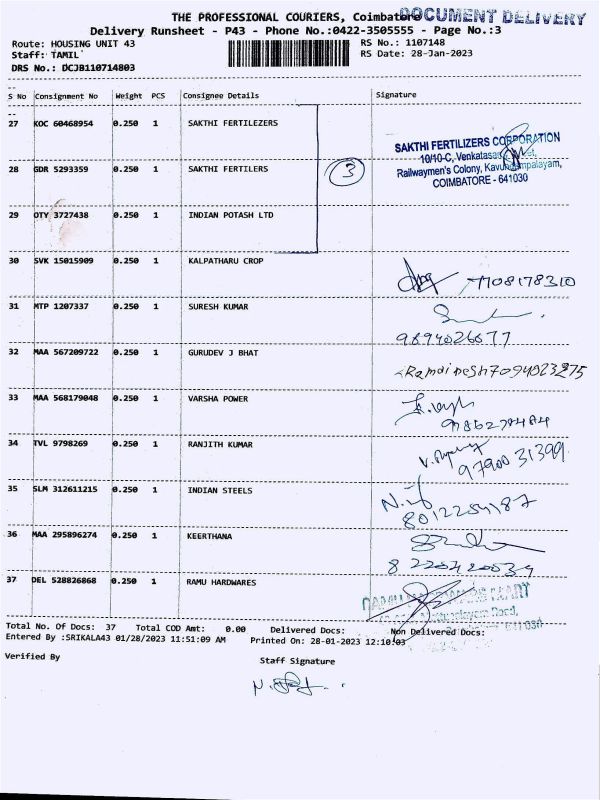 THE PROFESSIONAL COURIERS, Coimbatore
DOCUMENT DELIVERY
Delivery Runsheet - P43 - Phone No.:0422-3505555 - Page No.:3
Route: HOUSING UNIT 43
RS No.: 1107148
Staff: TAMIL
RS Date: 28-Jan-2023
DRS No.: DCJB110714803
S No Consignment No Weight PCS Consignee Details Signature
27 KOC 60468954 0.250 1 SAKTHI FERTILEZERS
SAKTHI FERTILIZERS CORPORATION
10/10-C,
Railwaymen's Colony, Kavundampalayam,
COIMBATORE - 641030
28 GDR 5293359 0.250 1 SAKTHI FERTILERS
3
29 OTY 3727438 0.250 1 INDIAN POTASH LTD
30 SVK 15015909 0.250 1 KALPATHARU CROP
7708178310
31 MTP 1207337 0.250 1 SURESH KUMAR
9894026677
32 MAA 567209722 0.250 1 GURUDEV J BHAT
7094023275
33 MAA 568179048 0.250 1 VARSHA POWER
34 TVL 9798269 0.250 1 RANJITH KUMAR
9790031399
35 SLM 312611215 0.250 1 INDIAN STEELS
36 MAA 295896274 0.250 1 KEERTHANA
8220420039
37 DEL 528826868 0.250 1 RAMU HARDWARES
Total No. Of Docs: 37 Total COD Amt: 0.00 Delivered Docs: Non Delivered Docs:
Entered By :SRIKALA43 01/28/2023 11:51:09 AM Printed On: 28-01-2023 12:10:03
Verified By
Staff Signature